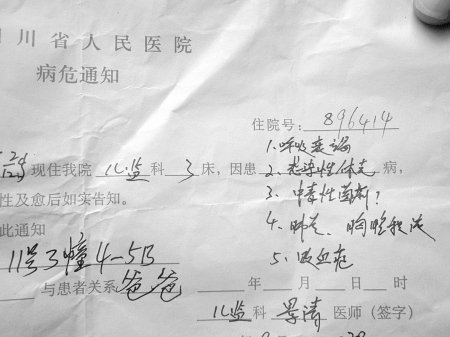 川省人民医院
病危通知
住院号：896414
1、呼吸衰竭
现住我院儿监科3床，因患2、感染性休克病，
性及愈后如实告知。 3、中毒性菌痢？
此通知 4、肺炎、胸腔积液
11号3幢4-5B 5、败血症
与患者关系爸爸 年 月 日 时
儿监科 景清 医师（签字）